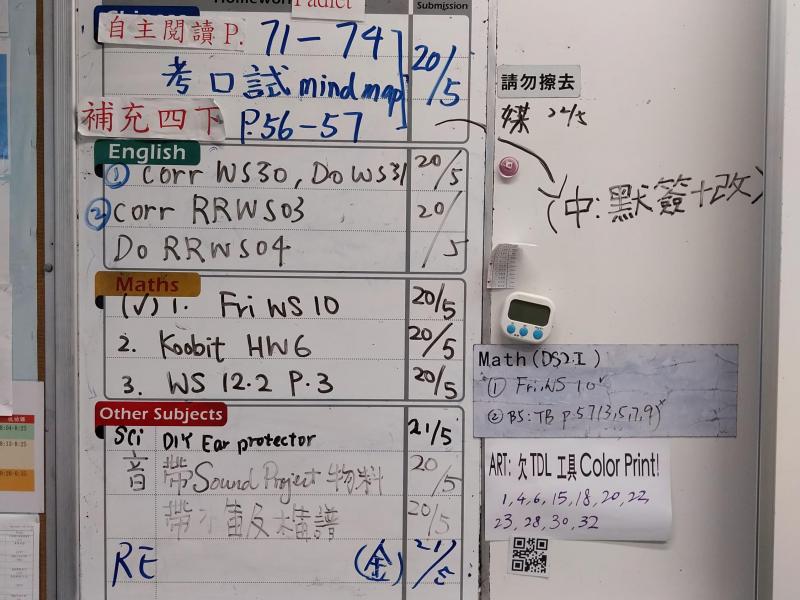 Submission
自主閱讀 P. 71-74
考口試 mind map
20/5
補充四下 P.56-57
English
① Corr WS30, Do WS31 20/5
② Corr RRWS03 20/5
Do RRWS04
Maths
(√) 1. Fri WS 10 20/5
2. Koobit HW6 20/5
3. WS 12.2 P.3 20/5
Other Subjects
Sci DIY Ear protector 21/5
音 帶 Sound Project 物料 20/5
帶小笛及木笛譜 20/5
RE (金) 21/5
請勿擦去
媒 22/5
(中:默簽+改)
Math (DS2.I)
① Fri.WS 10
② BS: TB p.57(3,5,7,9)
ART: 欠 TDL 工具 Color Print!
1, 4, 6, 15, 18, 20, 22,
23, 28, 30, 32